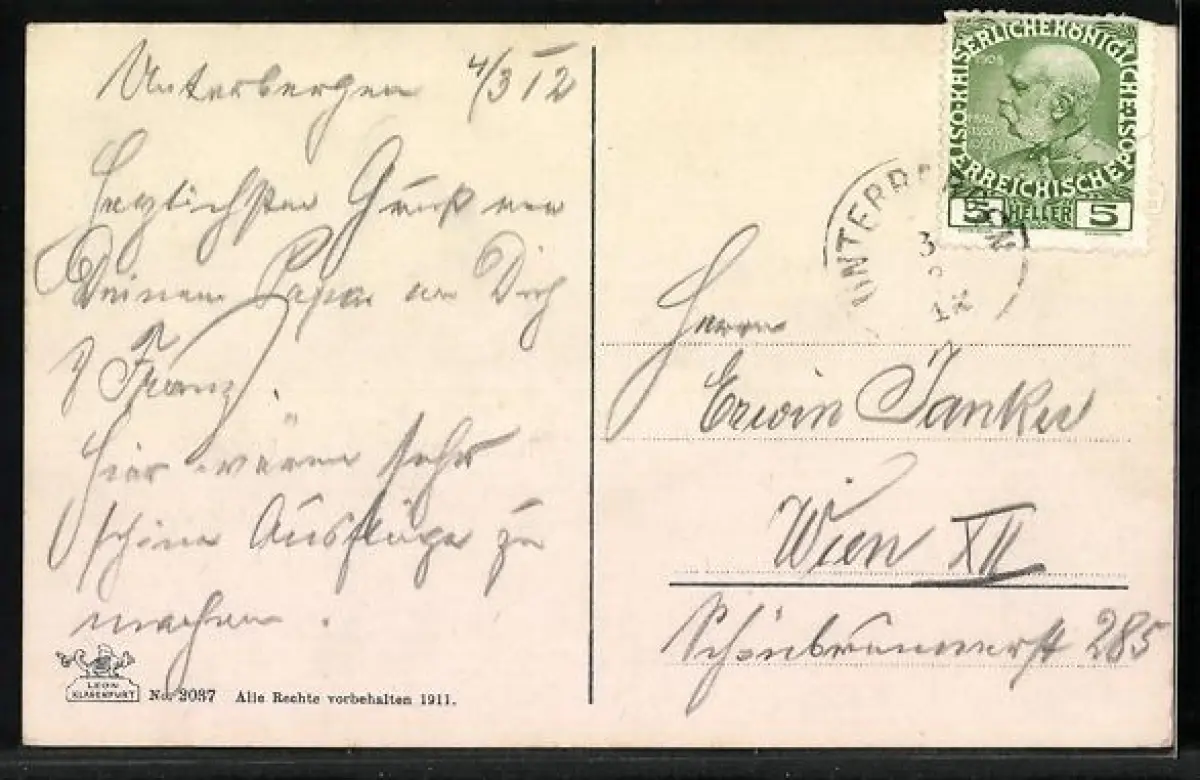 Unterbergen 4/3 12
Herzlichsten Gruß von
Deinem Papa an Dich
Franz.
Hier wären sehr
schöne Ausflüge zu
machen.
LEON
KLAGENFURT
No. 2037 Alle Rechte vorbehalten 1911.
KAISERLICHE KÖNIGLICHE ÖSTERREICHISCHE POST
1908
5 HELLER 5
3
12
Herrn
Erwin Janker
Wien XII
Schönbrunnerst 285